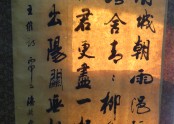 城朝雨浥
舍青々柳
君更盡一
出陽關無
王維詩